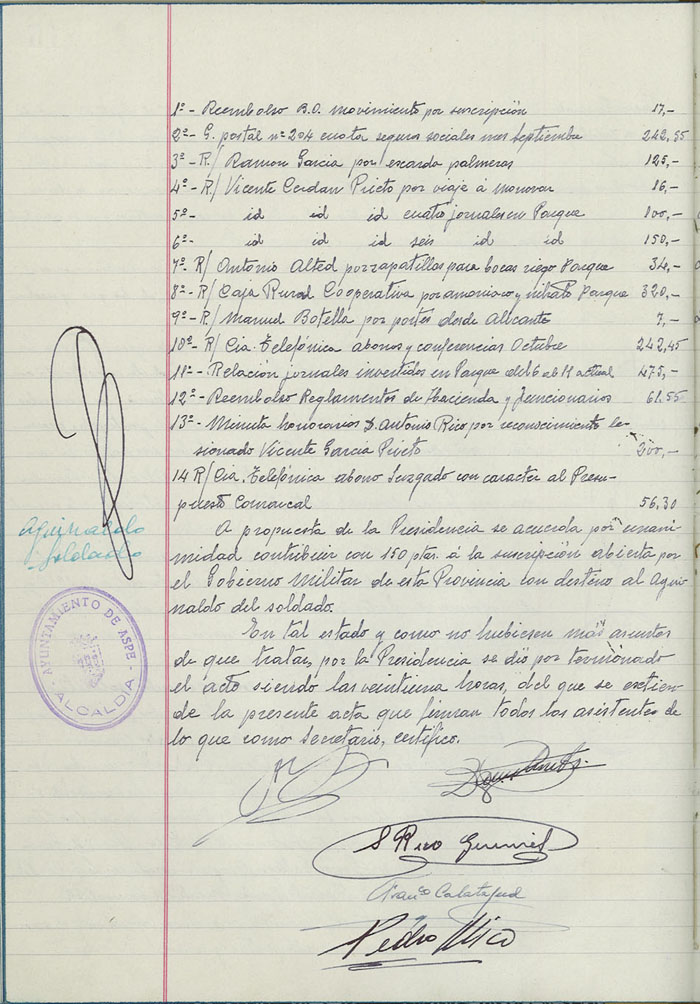 1º- Reembolso B.O. movimiento por suscripción 17,-
2º- G. postal nº 204 cuota seguros sociales mes Septiembre 242,55
3º- R/ Ramon Garcia por escarda palmeras 125,-
4º- R/ Vicente Cerdan Prieto por viaje á monovar 16,-
5º- id id id cuatro jornales en Parque 100,-
6º- id id id seis id id 150,-
7º- R/ Antonio Alted por zapatillas para bocas riego Parque 34,-
8º- R/ Caja Rural Cooperativa por amoniaco y nitrato Parque 320,-
9º- R/ Manuel Botella por portes desde Alicante 7,-
10º- R/ Cia. Telefónica abonos y conferencias Octubre 242,45
11º- Relación jornales invertidos en Parque del 6 al 11 actual 475,-
12º- Reembolso Reglamentos de Hacienda y funcionarios 61.55
13º- Minuta honorarios D. Antonio Rico por reconocimiento le-
sionado Vicente Garcia Prieto 200,-
14 R/ Cia. Telefónica abono Juzgado con caracter al Presu-
puesto Comarcal 56,30
Aguinaldo
soldado
A propuesta de la Presidencia se acuerda por unani-
midad contribuir con 150 ptas. á la suscripción abierta por
el Gobierno Militar de esta Provincia con destino al agui-
naldo del soldado.
AYUNTAMIENTO DE ASPE
- ALCALDIA -
En tal estado y como no hubiesen más asuntos
de que tratar, por la Presidencia se dió por terminado
el acto siendo las veintiuna horas, del que se extien-
de la presente acta que firman todos los asistentes de
lo que como Secretario, certifico.
S Rico
Franco Calatayud
Pedro Mico